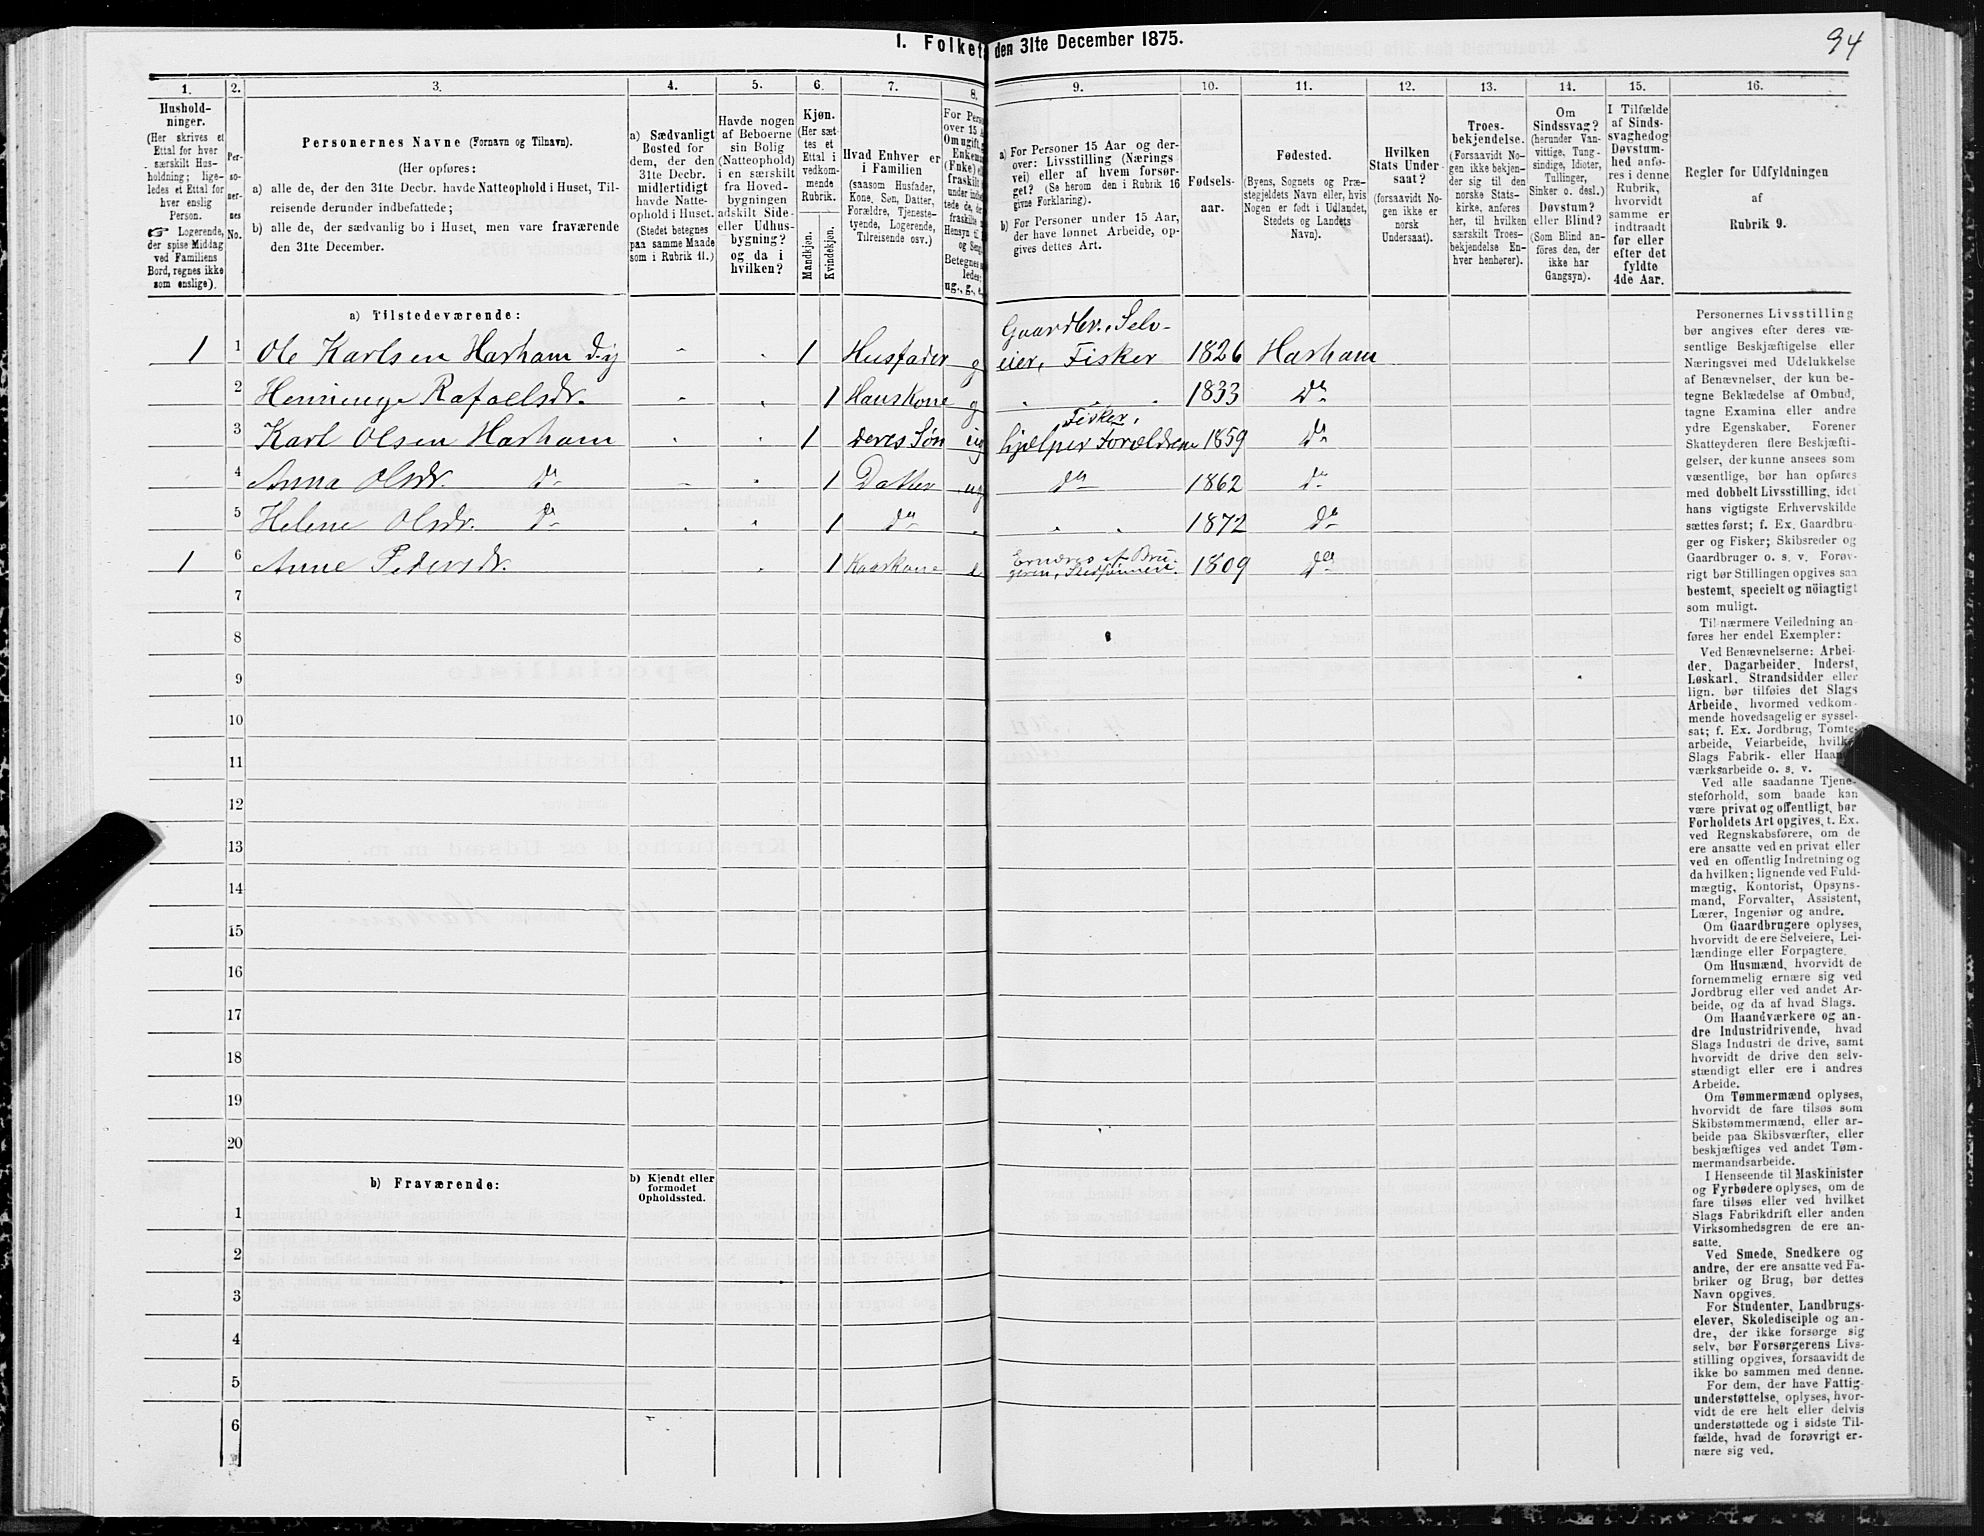 94
1. Folket
den 31te December 1875.
1.
Hushold-
ninger.
(Her skrives et
Ettal for hver
særskilt Hus-
holdning; lige-
ledes et Ettal for
hver enslig
Person.
☞ Logerende,
der spise Middag
ved Familiens
Bord, regnes ikke
som enslige).
2.
Per-
so-
ner-
nes
No.
3.
Personernes Navne (Fornavn og Tilnavn).
(Her opføres:
a) alle de, der den 31te Decbr. havde Natteophold i Huset, Til-
reisende derunder indbefattede;
b) alle de, der sædvanlig bo i Huset, men vare fraværende
den 31te December.
4.
a) Sædvanligt
Bosted for
dem, der den
31te Decbr.
midlertidigt
havde Natte-
ophold i Huset.
(Stedet betegnes
paa samme Maade
som i Rubrik 11.)
5.
Havde nogen
af Beboerne
sin Bolig
(Natteophold)
i en særskilt
fra Hoved-
bygningen
adskilt Side-
eller Udhus-
bygning?
og da i
hvilken?
6.
Kjøn.
(Her sæt-
tes et
Ettal i
vedkom-
mende
Rubrik.
Mandkjøn.
Kvindekjøn.
7.
Hvad Enhver er
i Familien
(saasom Husfader,
Kone, Søn, Datter,
Forældre, Tjeneste-
tyende, Logerende,
Tilreisende osv.)
8.
For Pers
over 15 Aa
Om ugift, g
Enkem
(Enke) e
fraskilt
under indbe
tede de, de
fraskilte
Hensyn til
og Seng
Betegnes s
ledes:
ug., g., e.
9.
a) For Personer 15 Aar og der-
over: Livsstilling (Nærings
vei) eller af hvem forsør-
get? (Se herom den i Rubrik 16
givne Forklaring).
b) For Personer under 15 Aar,
der have lønnet Arbeide, op-
gives dettes Art.
10.
Fødsels-
aar.
11.
Fødested.
(Byens, Sognets og Præ-
stegjeldets Navn eller, hvis
Nogen er født i Udlandet,
Stedets og Landets
Navn).
12.
Hvilken
Stats Under-
saat?
(forsaavidt No-
gen ikke er
norsk
Undersaat).
13.
Troes-
bekjendelse.
(Forsaavidt No-
gen ikke bekjen-
der sig til den
norske Stats-
kirke, anføres
her, til hvilken
særskilt Troes-
bekjendelse En-
hver henhører).
14.
Om
Sindssvag?
(herunder Van-
vittige, Tung-
sindige, Idioter,
Tullinger,
Sinker o. desl.)
Døvstum?
eller Blind?
(Som Blind an-
føres den, der
ikke har
Gangsyn).
15.
I Tilfælde
af Sinds-
svaghed og
Døvstum-
hed anfø-
res i denne
Rubrik,
hvorvidt
samme er
indtraadt
før eller
efter det
fyldte
4de Aar.
16.
Regler for Udfyldningen
af
Rubrik 9.
a) Tilstedeværende:
Gaardbr. Selv-
1 1 Ole Karlsen Harham 1 Husfader g eier, Fisker 1826 Harham
2 Henninge Rafaelsdr. 1 Hans Kone g 1833 Do
Fisker,
3 Karl Olsen Harham 1 deres Søn ug hjælper Forældrene 1859 Do
4 Anna Olsdr. Do 1 Datter ug do 1862 do
5 Helene Olsdr. Do 1 do 1872 do
Ernæres af Bru-
1 6 Anne Pedersdr. 1 Kaarkone e geren, Stedsønnen. 1809 do
7
8
9
10
11
12
13
14
15
16
17
18
19
20
b) Fraværende:
b) Kjendt eller
formodet
Opholdssted.
1
2
3
4
5
6
Personernes Livsstilling
bør angives efter deres væ-
sentlige Beskjæftigelse eller
Næringsvei med Udelukkelse
af Benævnelser, der kun be-
tegne Beklædelse af Ombud,
tagne Examina eller andre
ydre Egenskaber. Forener
Skatteyderen flere Beskjæfti-
gelser, der kunne ansees som
væsentlige, bør han opføres
med dobbelt Livsstilling, idet
hans vigtigste Erhvervskilde
sættes først; f. Ex. Gaardbru-
ger og Fisker; Skibsreder og
Gaardbruger o. s. v. Forøv-
rigt bør Stillingen opgives saa
bestemt, specielt og nöiagtigt
som muligt.
Til nærmere Veiledning an-
føres her endel Exempler:
Ved Benævnelserne: Arbei-
der, Dagarbeider, Inderst,
Løskarl, Strandsidder eller
lign. bør tilføies det Slags
Arbeide, hvormed vedkom-
mende hovedsagelig er syssel-
sat; f. Ex. Jordbrug, Tomte-
arbeide, Veiarbeide, hvilket
Slags Fabrik- eller Haand-
værksarbeide o. s. v.
Ved alle saadanne Tjene-
steforhold, som baade kan
være privat og offentligt, bør
Forholdets Art opgives, t. Ex.
ved Regnskabsførere, om de
ere ansatte ved en privat eller
ved en offentlig Indretning og
da hvilken; lignende ved Fuld-
mægtig, Kontorist, Opsyns-
mand, Forvalter, Assistent,
Lærer, Ingeniør og andre.
Om Gaardbrugere oplyses,
hvorvidt de ere Selveiere, Lei-
lændinge eller Forpagtere.
Om Husmænd, hvorvidt de
fornemmelig ernære sig ved
Jordbrug eller ved andet Ar-
beide, og da af hvad Slags.
Om Haandværkere og an-
dre Industridrivende, hvad
Slags Industri de drive, samt
hvorvidt de drive den selv-
stændigt eller ere i andres
Arbeide.
Om Tømmermænd oplyses,
hvorvidt de fare tilsøs som
Skibstømmermænd, eller ar-
beide paa Skibsværfter, eller
beskjæftiges ved andet Tøm-
mermandsarbeide.
I Henseende til Maskinister
og Fyrbødere oplyses, om de
fare tilsøs eller ved hvilket
Slags Fabrikdrift eller anden
Virksomhedsgren de ere an-
satte.
Ved Smede, Snedkere og
andre, der ere ansatte ved Fa-
briker og Brug, bør dettes
Navn opgives.
For Studenter, Landbrugs-
elever, Skoledisciple og an-
dre, der ikke forsørge sig
selv, bør Forsørgerens Livs-
stilling opgives, forsaavidt de
ikke bo sammen med denne.
For dem, der have Fattig-
understøttelse, oplyses, hvor-
vidt de ere helt eller delvis
understøttede og i sidste Til-
fælde, hvad de forøvrigt er-
nære sig ved.